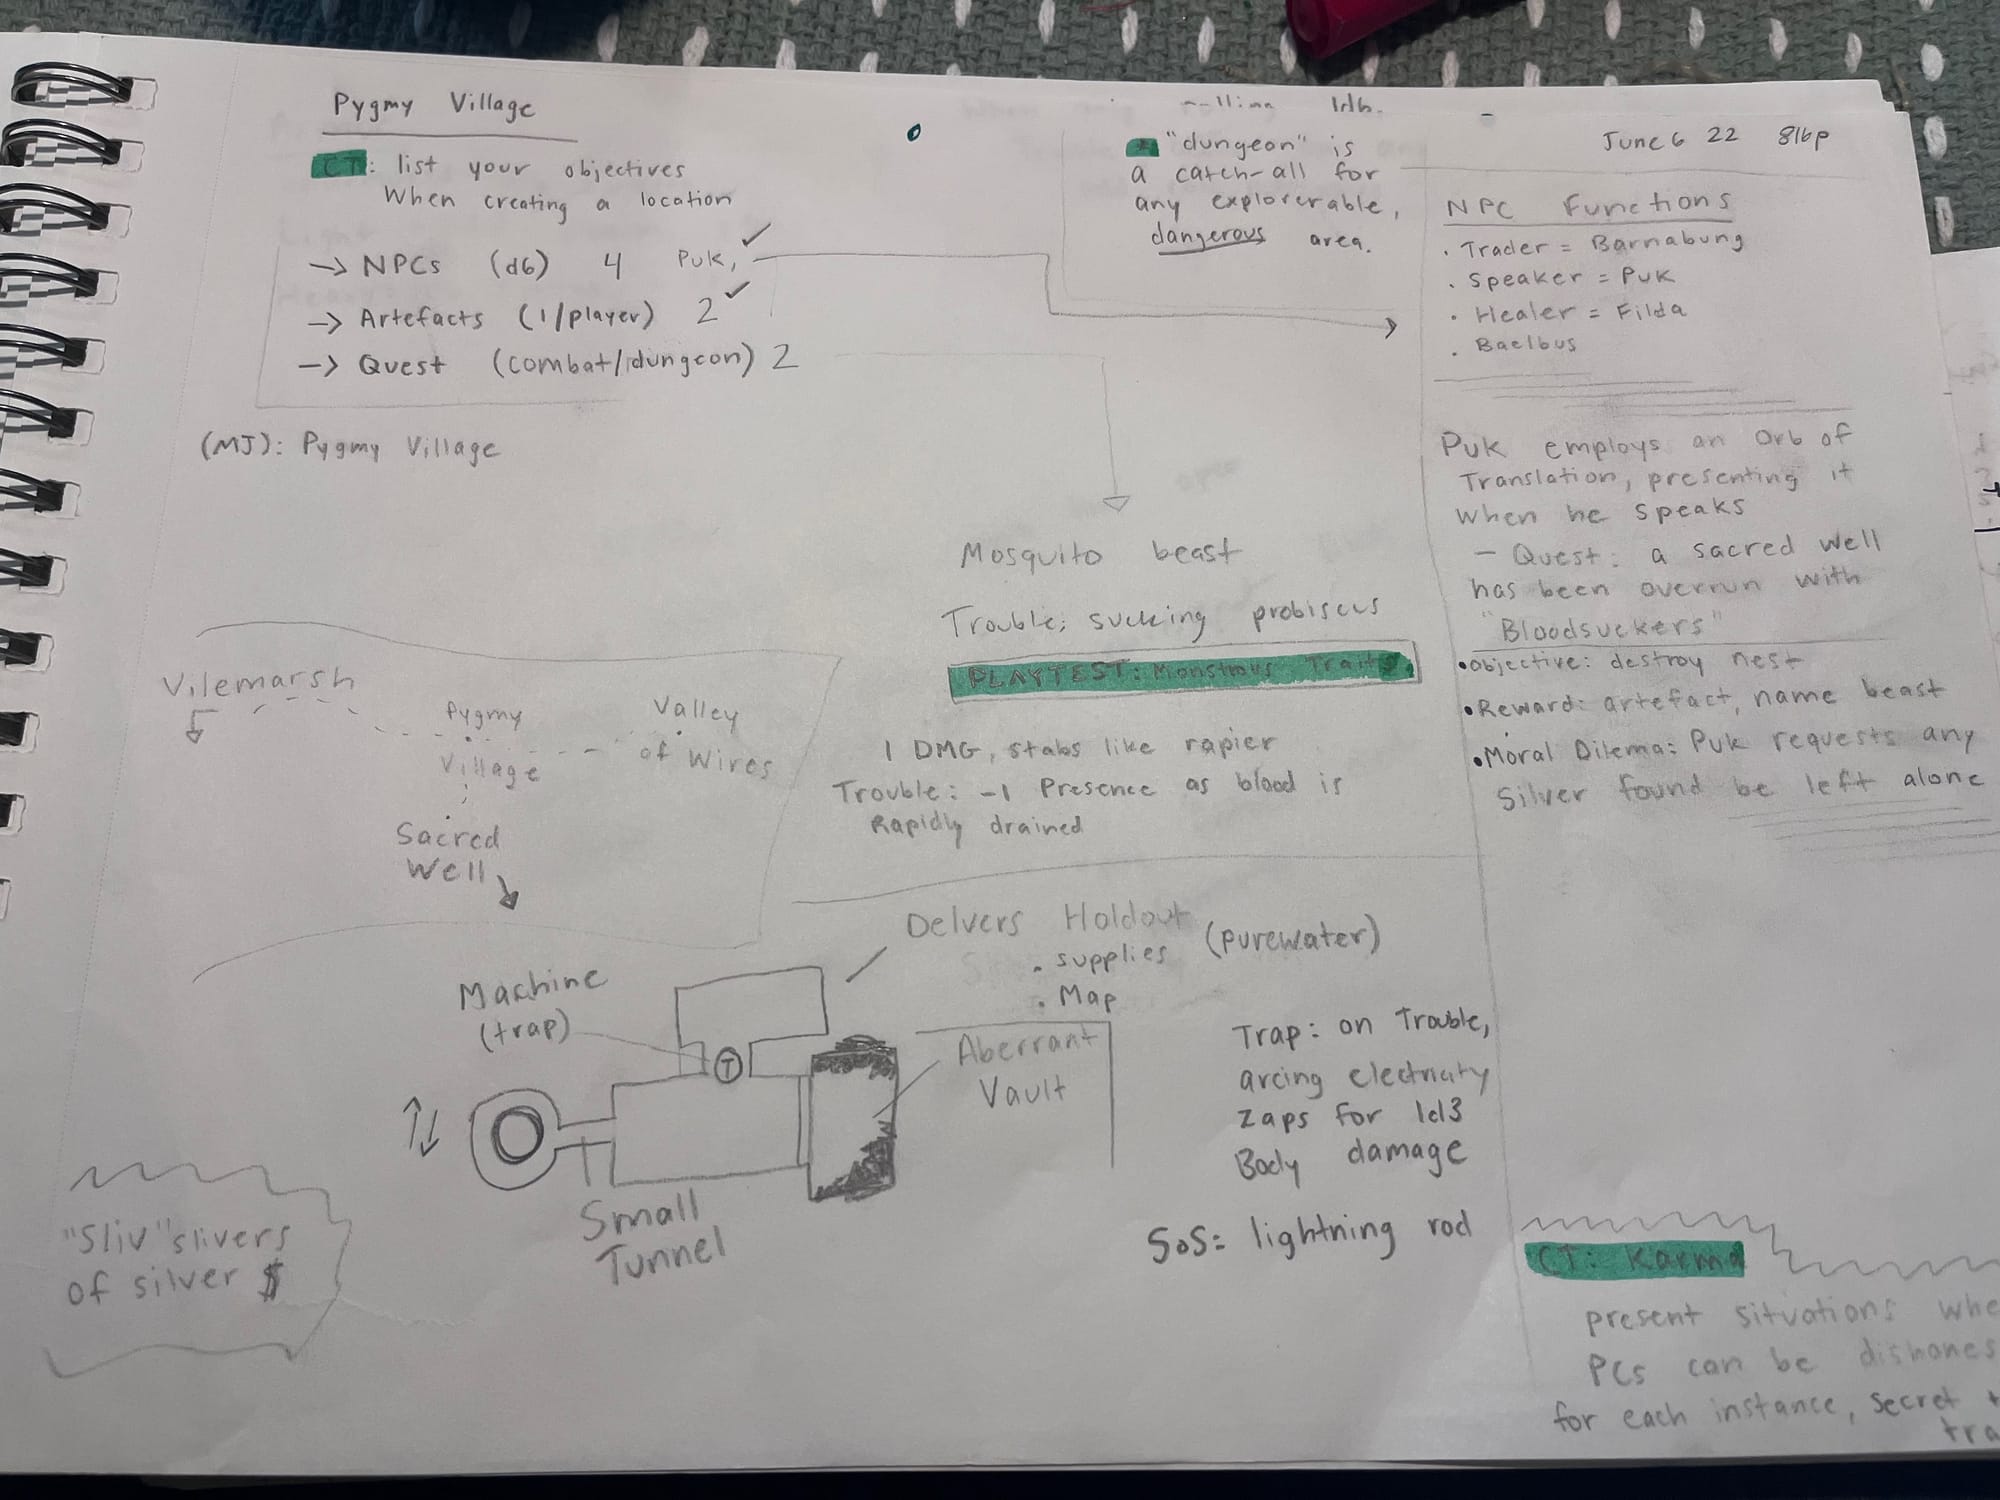 Pygmy Village
CT: list your objectives
When creating a location
→ NPCs (d6) 4 Puk, ✓
→ Artefacts (1/player) 2 ✓
→ Quest (combat/dungeon) 2
(MJ): Pygmy Village
"dungeon" is
a catch-all for
any explorerable,
dangerous area.
June 6 22 816p
NPC Functions
· Trader = Barnabung
· Speaker = Puk
· Healer = Filda
· Baelbus
Puk employs an Orb of
Translation, presenting it
when he speaks
- Quest: a sacred well
has been overrun with
"Bloodsuckers"
• Objective: destroy nest
• Reward: artefact, name beast
• Moral Dilema: Puk requests any
Silver found be left alone
Mosquito beast
Trouble: sucking probiscus
PLAYTEST: Monstrous Traits
1 DMG, stabs like rapier
Trouble: -1 Presence as blood is
Rapidly drained
Vilemarsh
Pygmy
Village
Valley
of Wires
Sacred
Well
Delvers Holdout
· supplies (purewater)
· Map
Machine
(trap)
T
Aberrant
Vault
Small
Tunnel
Trap: on Trouble,
arcing electricity
zaps for 1d3
Body damage
SoS: lightning rod
"Sliv" slivers
of silver $
CT: Karma
present situations
PCs can be
for each instance, secret